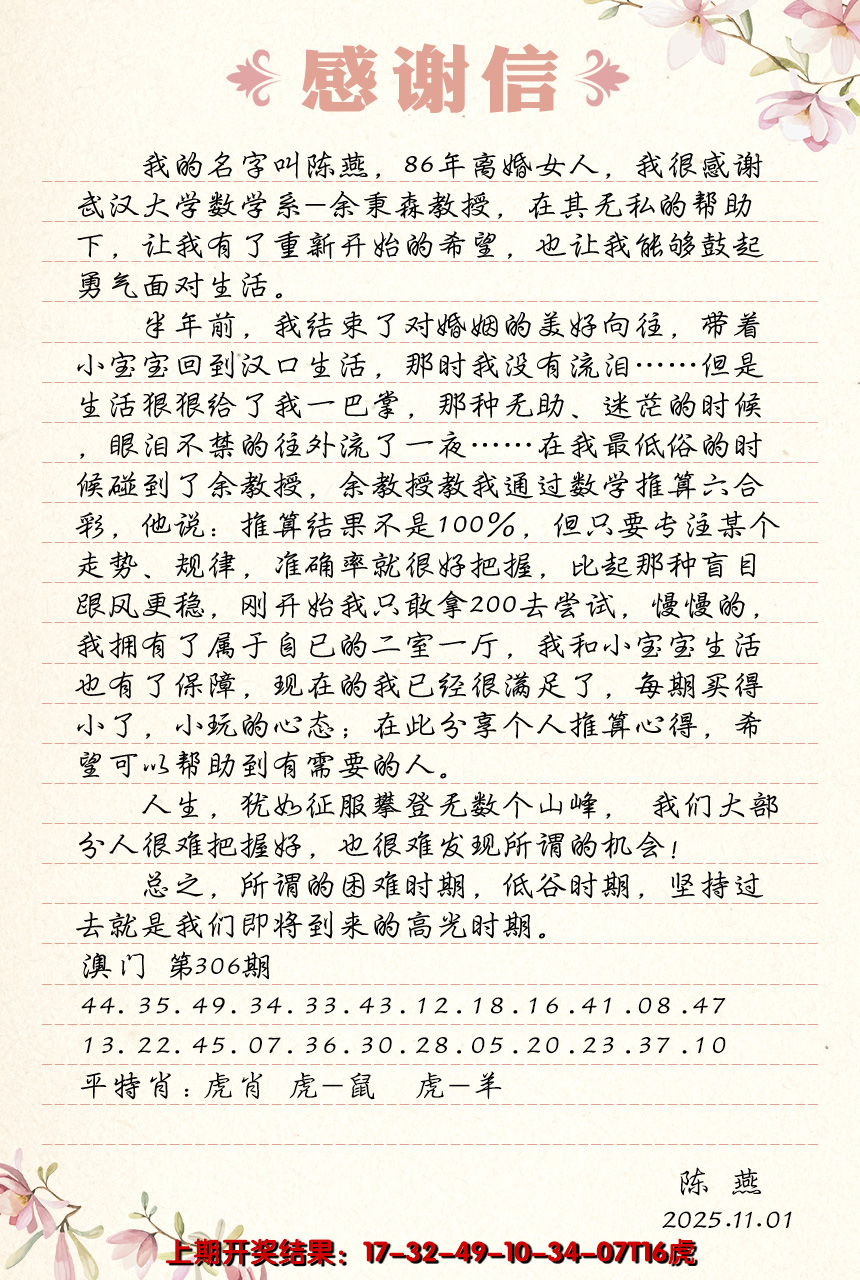 感谢信
我的名字叫陈燕，86年离婚女人，我很感谢
武汉大学数学系-余秉森教授，在其无私的帮助
下，让我有了重新开始的希望，也让我能够鼓起
勇气面对生活。
半年前，我结束了对婚姻的美好向往，带着
小宝宝回到汉口生活，那时我没有流泪……但是
生活狠狠给了我一巴掌，那种无助、迷茫的时候
，眼泪不禁的往外流了一夜……在我最低俗的时
候碰到了余教授，余教授教我通过数学推算六合
彩，他说：推算结果不是100%，但只要专注某个
走势、规律，准确率就很好把握，比起那种盲目
跟风更稳，刚开始我只敢拿200去尝试，慢慢的，
我拥有了属于自已的二室一厅，我和小宝宝生活
也有了保障，现在的我已经很满足了，每期买得
小了，小玩的心态；在此分享个人推算心得，希
望可以帮助到有需要的人。
人生，犹如征服攀登无数个山峰， 我们大部
分人很难把握好，也很难发现所谓的机会！
总之，所谓的困难时期，低谷时期，坚持过
去就是我们即将到来的高光时期。
澳门 第306期
44.35.49.34.33.43.12.18.16.41.08.47
13.22.45.07.36.30.28.05.20.23.37.10
平特肖：虎肖 虎-鼠 虎-羊
陈 燕
2025.11.01
上期开奖结果：17-32-49-10-34-07T16虎